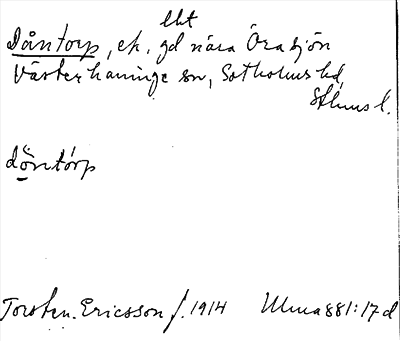 ebt
Dåntorp, ek. gd nära Örasjön
Västerhaninge sn, Sotholms hd,
Sthlms l.
döntórp
Torsten Ericsson f. 1914 Ulma 881:17 d